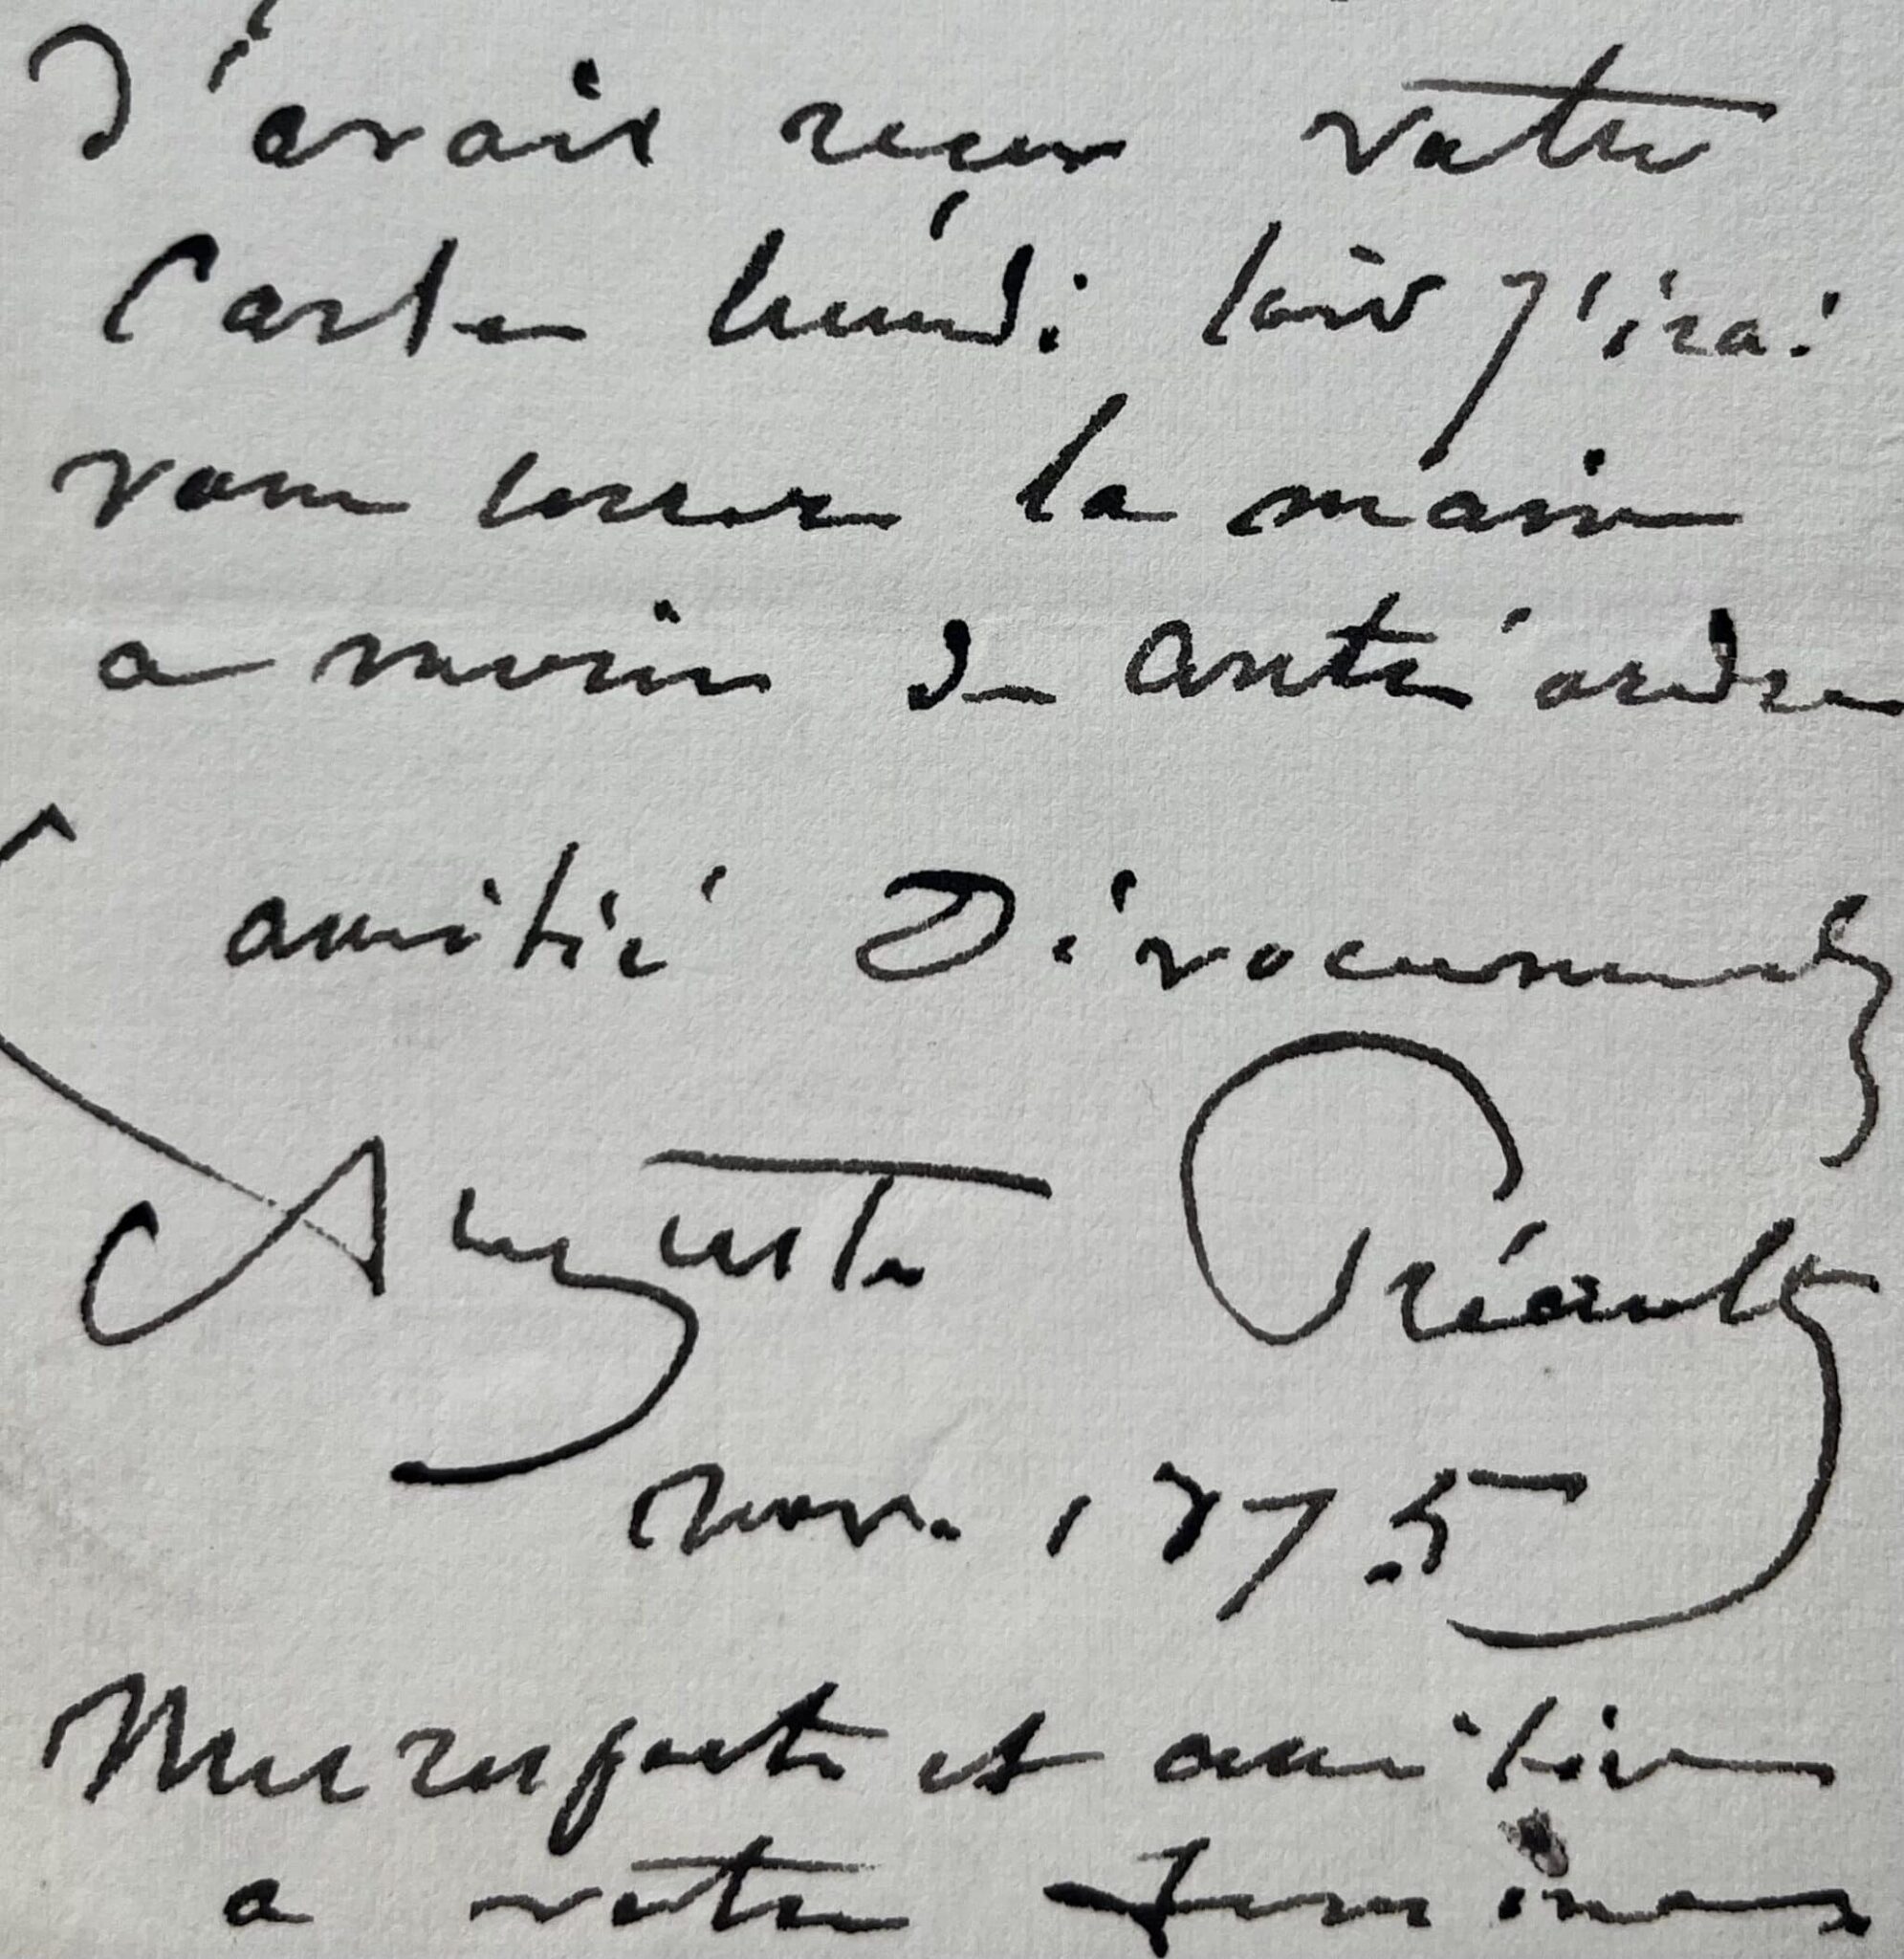 J'avais reçu votre
Carte lundi soir j'irai
vous serrer la main
a moins de contre ordre
amitié Dévouement
Auguste Préault
nov. 1875
Mes respects et amitiés
a votre